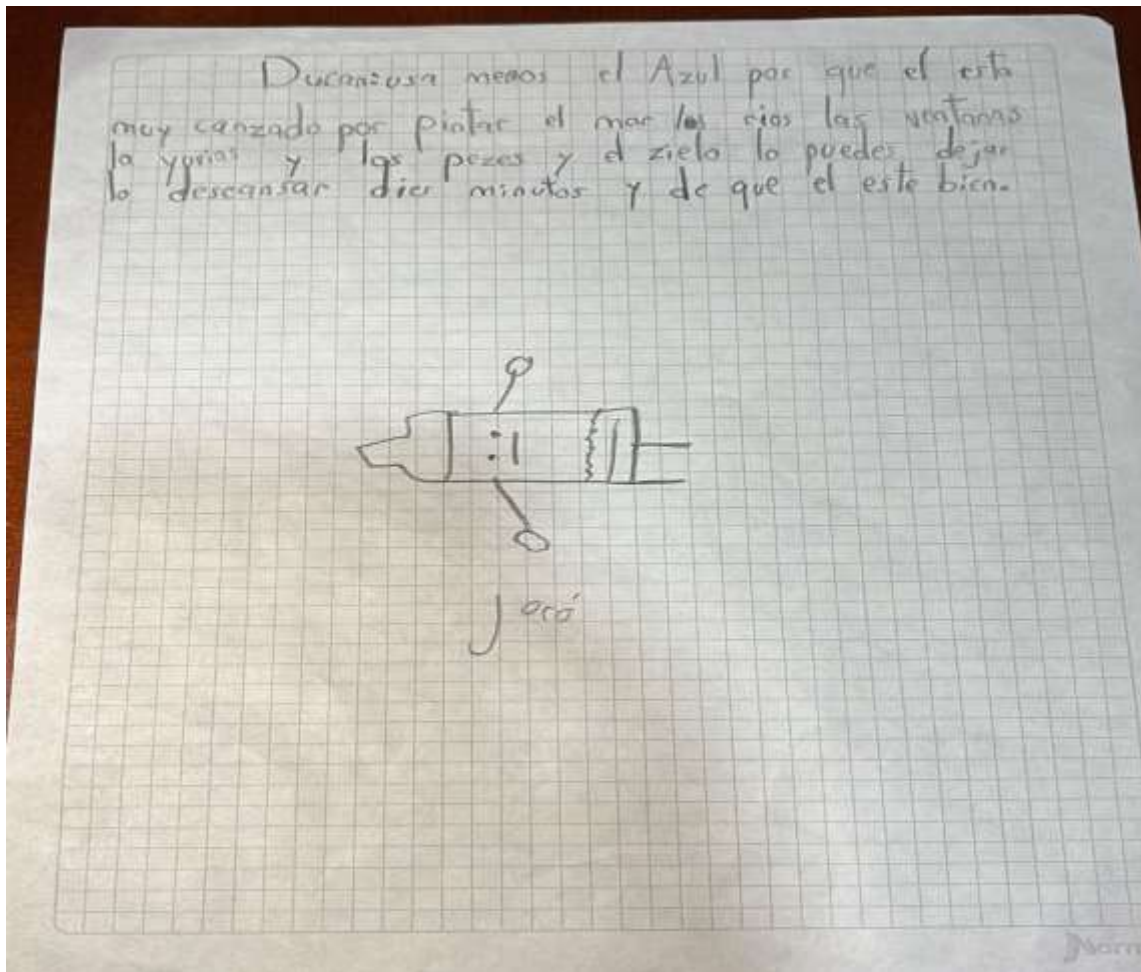 Ducan: usa menos el Azul por que el esta
muy canzado por pintar el mar los rios las ventanas
la yuvias y los pezes y el zielo lo puedes dejar
lo descansar diez minutos y de que el este bien.
Jacó
Norm